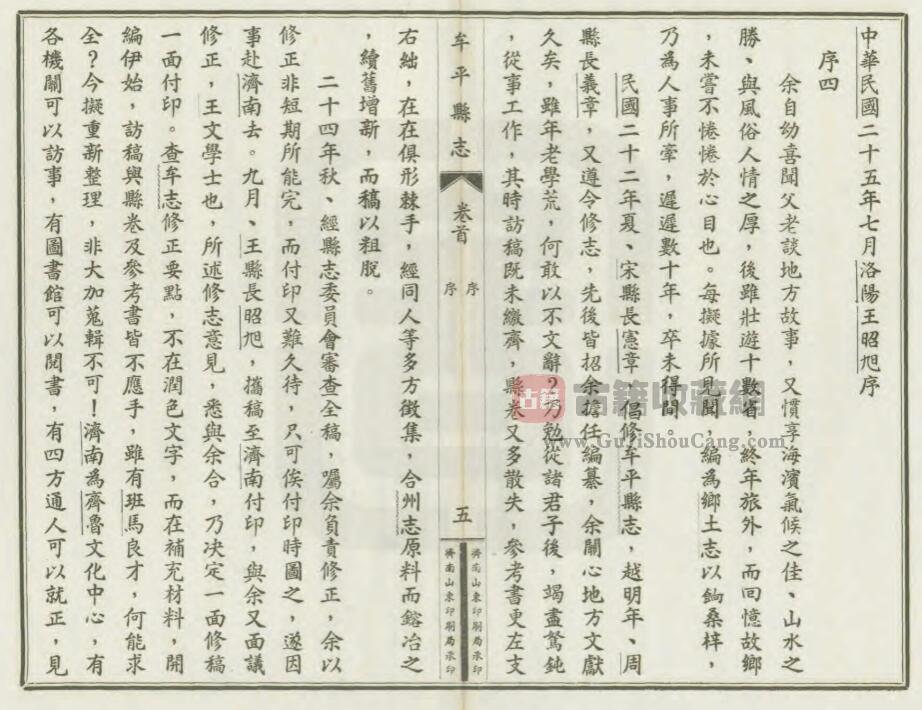 中華民國二十五年七月洛陽王昭旭序
序四
余自幼喜聞父老談地方故事，又慣享海濱氣候之佳、山水之
勝、與風俗人情之厚，後雖壯遊十數省，終年旅外，而回憶故鄉
，未嘗不惓惓於心目也。每擬據所見聞，編為鄉土志以鉤桑梓，
乃為人事所牽，遲遲數十年，卒未得間
民國二十二年夏、宋縣長憲章，倡修牟平縣志，越明年、周
縣長義章，又遵令修志，先後皆招余擔任編纂，余關心地方文獻
久矣，雖年老學荒，何敢以不文辭？乃勉從諸君子後，竭盡駑鈍
，從事工作，其時訪稿既未繳齊，縣卷又多散失，參考書更左支
牟平縣志
卷首
序
序
五
濟南山東印刷局承印
濟南山東印刷局承印
右絀，在在俱形棘手，經同人等多方徵集，合州志原料而鎔冶之
，續舊增新，而稿以粗脫。
二十四年秋、經縣志委員會審查全稿，囑余負責修正，余以
修正非短期所能完，而付印又難久待，只可俟付印時圖之，遂因
事赴濟南去。九月、王縣長昭旭，攜稿至濟南付印，與余又面議
修正，王文學士也，所述修志意見，悉與余合，乃決定一面修稿
一面付印。查牟志修正要點，不在潤色文字，而在補充材料，開
編伊始，訪稿與縣卷及參考書皆不應手，雖有班馬良才，何能求
全？今擬重新整理，非大加蒐輯不可！濟南為齊魯文化中心，有
各機關可以訪事，有圖書館可以閱書，有四方通人可以就正，見
古籍
古籍收藏網
www.GuJiShouCang.com